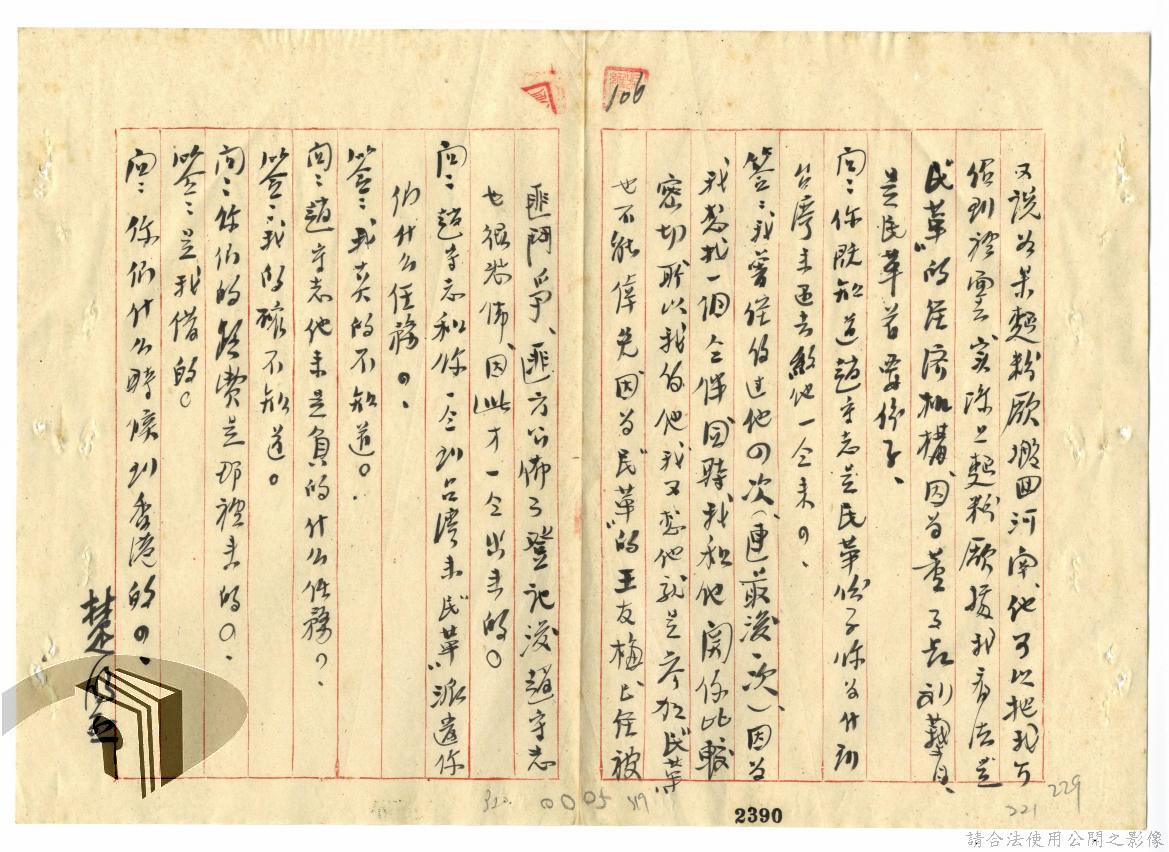 106
又說如果麵粉廠搬回河南、他可以把我介
紹到裡面、實際上麵粉廠據我看法是
"民革"的經濟機構、因為董事長劉藝舟、
是民革首要份子、
問：你既知道趙守志是民革份子你為什到
台灣來還去繳他一仝來？、
答：我曾經約過他四次（連最後一次）、因為
我想找一個仝伴同時我和他關係比較
密切所以我約他我又想他就是參加"民革"
也不能倖免因為"民革"的王友梅已經被
匪鬥爭、匪方公佈了登記後趙守志
也很恐怖、因此才一仝出來的。
問：趙守志和你一仝到台灣來"民革"派遣你
們什么任務？、
答：我真的不知道。
問：趙守志他來是負的什么任務？、
答：我的確不知道。
問：你們的路費是那裡來的？、
答：是我借的。
問：你們什么時候到香港的？、
0005
2390
221
229
請合法使用公開之影像